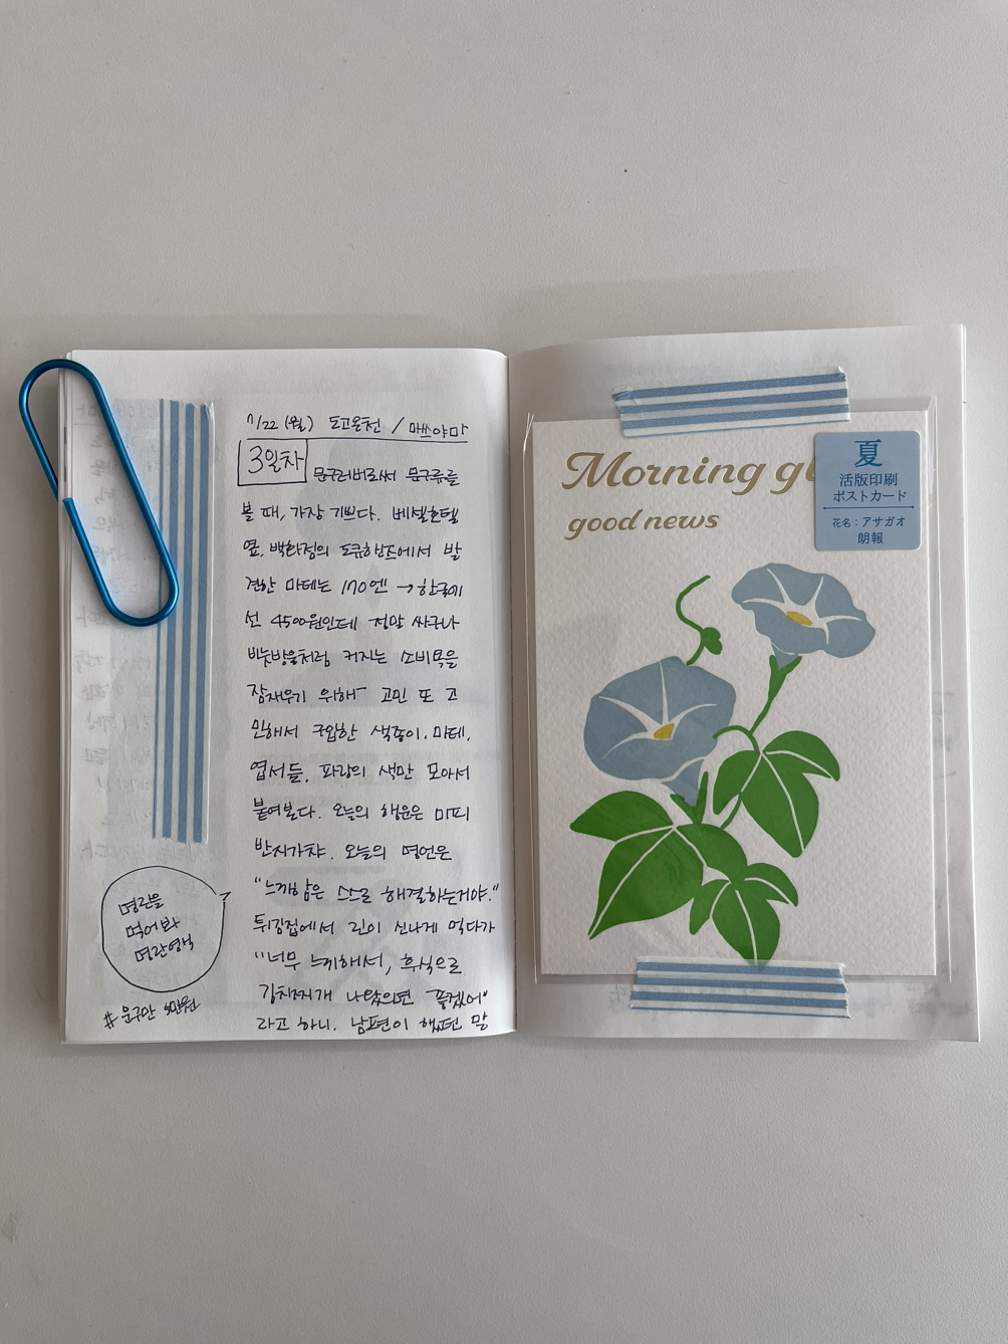 7/22 (월) 도고온천 / 마쓰야마
3일차
문구러버로써 문구류를
볼 때, 가장 기쁘다. 베셀호텔
옆, 백화점의 도큐핸즈에서 발
견한 마테는 170엔 → 한국에
선 4500원인데 정말 싸구나
비눗방울처럼 커지는 소비욕을
잠재우기 위해 고민 또 고
민해서 구입한 색종이, 마테,
엽서들. 파랑의 색만 모아서
붙여본다. 오늘의 행운은 미피
반지가챠. 오늘의 명언은
"느끼함은 스스로 해결하는거야."
튀김집에서 린이 신나게 먹다가
"너무 느끼해서, 후식으로
김치찌개 나왔으면 좋겠어"
라고 하니. 남편이 했던 말
명란을
먹어봐
명란영석
# 문구만 5만원
Morning gl
good news
夏
活版印刷
ポストカード
花名：アサガオ
朗報